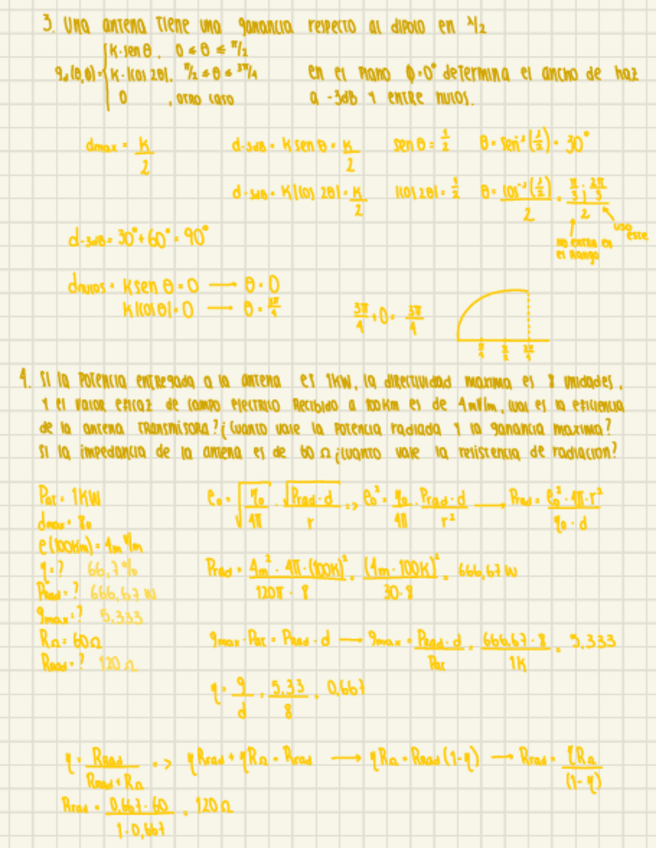 3. Una antena tiene una ganancia respecto al dipolo en λ/2
g_d(θ,ϕ)= { K·senθ, 0≤θ≤π/2
K·|cos 2θ|, π/2≤θ≤3π/4
0 , otro caso
en el plano ϕ=0° determina el ancho de haz
a -3dB y entre nulos.
dmax = K/2
d-3dB = K senθ = K/2 senθ = 1/2 θ = sen⁻¹(1/2) = 30°
d-3dB = K|cos 2θ| = K/2 |cos 2θ| = 1/2 θ = cos⁻¹(1/2)/2 = π/3 ; 2π/3 /2
no entra en el rango
uso este
d-3dB = 30°+60° = 90°
dnulos = K senθ = 0 → θ = 0
K|cosθ| = 0 → θ = 3π/4
3π/4 + 0 = 3π/4
π/4 π/2 3π/4
4. Si la potencia entregada a la antena es 1KW, la directividad maxima es 8 unidades,
y el valor eficaz de campo electrico recibido a 100km es de 4mV/m, cual es la eficiencia
de la antena transmisora? ¿Cuanto vale la potencia radiada y la ganancia maxima?
Si la impedancia de la antena es de 60 Ω ¿cuanto vale la resistencia de radiacion?
Pat = 1KW
dmax = 8
e(100km) = 4m V/m
η = ? 66,7%
Prad = ? 666,67 W
gmax = ? 5,333
RΩ = 60Ω
Rrad = ? 120 Ω
e₀ = √(η₀/4π) · √(Prad·d)/r => e₀² = η₀/4π · Prad·d/r² → Prad = e₀²·4π·r²/η₀·d
Prad = 4m²·4π·(100K)²/120π·8 = (4m·100K)²/30·8 = 666,67 W
gmax·Pat = Prad·d → gmax = Prad·d/Pat = 666,67·8/1K = 5,333
η = g/d = 5,33/8 = 0,667
η = Rrad/Rrad+RΩ => ηRrad + ηRΩ = Rrad → ηRΩ = Rrad(1-η) → Rrad = ηRΩ/(1-η)
Rrad = 0,667·60/1-0,667 = 120 Ω